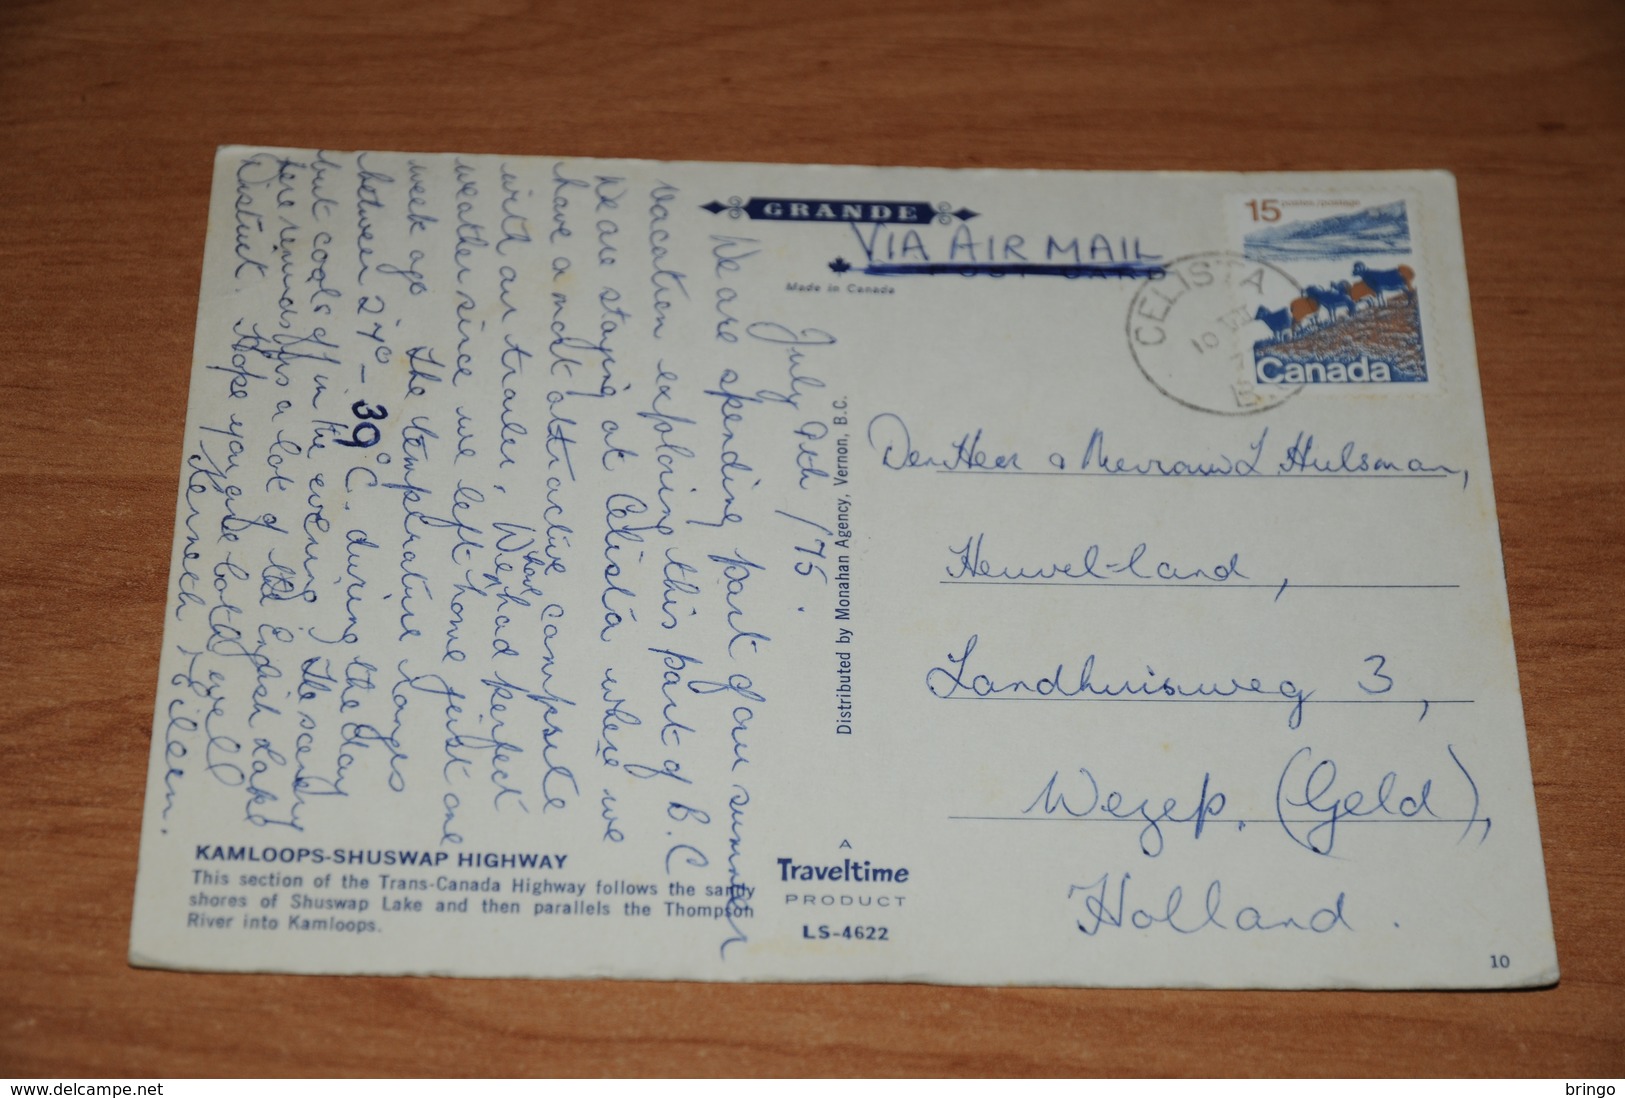 GRANDE
VIA AIR MAIL
POST CARD
Made in Canada
15 postes/postage
Canada
CELISTA
10 VII
B
July 9th /75.
We are spending part of our summer
vacation exploring this part of B.C
We are staying at Celista where we
have a most attractive campsite
with our trailer. We have had perfect
weather since we left home just one
week ago. The temperature ranges
between 27°C - 39°C. during the day
but cools off in the evening. The scenery
here reminds us a lot of the English Lake
District. Hope you are both well
Kenneth & Eileen.
Distributed by Monahan Agency, Vernon, B.C.
Den Heer & Mevrouw L. Hulsman,
Heuvel-land,
Landhuisweg 3,
Wezep. (Geld),
Holland.
KAMLOOPS-SHUSWAP HIGHWAY
This section of the Trans-Canada Highway follows the sandy
shores of Shuswap Lake and then parallels the Thompson
River into Kamloops.
A
Traveltime
PRODUCT
LS-4622
10
www.delcampe.net
bringo